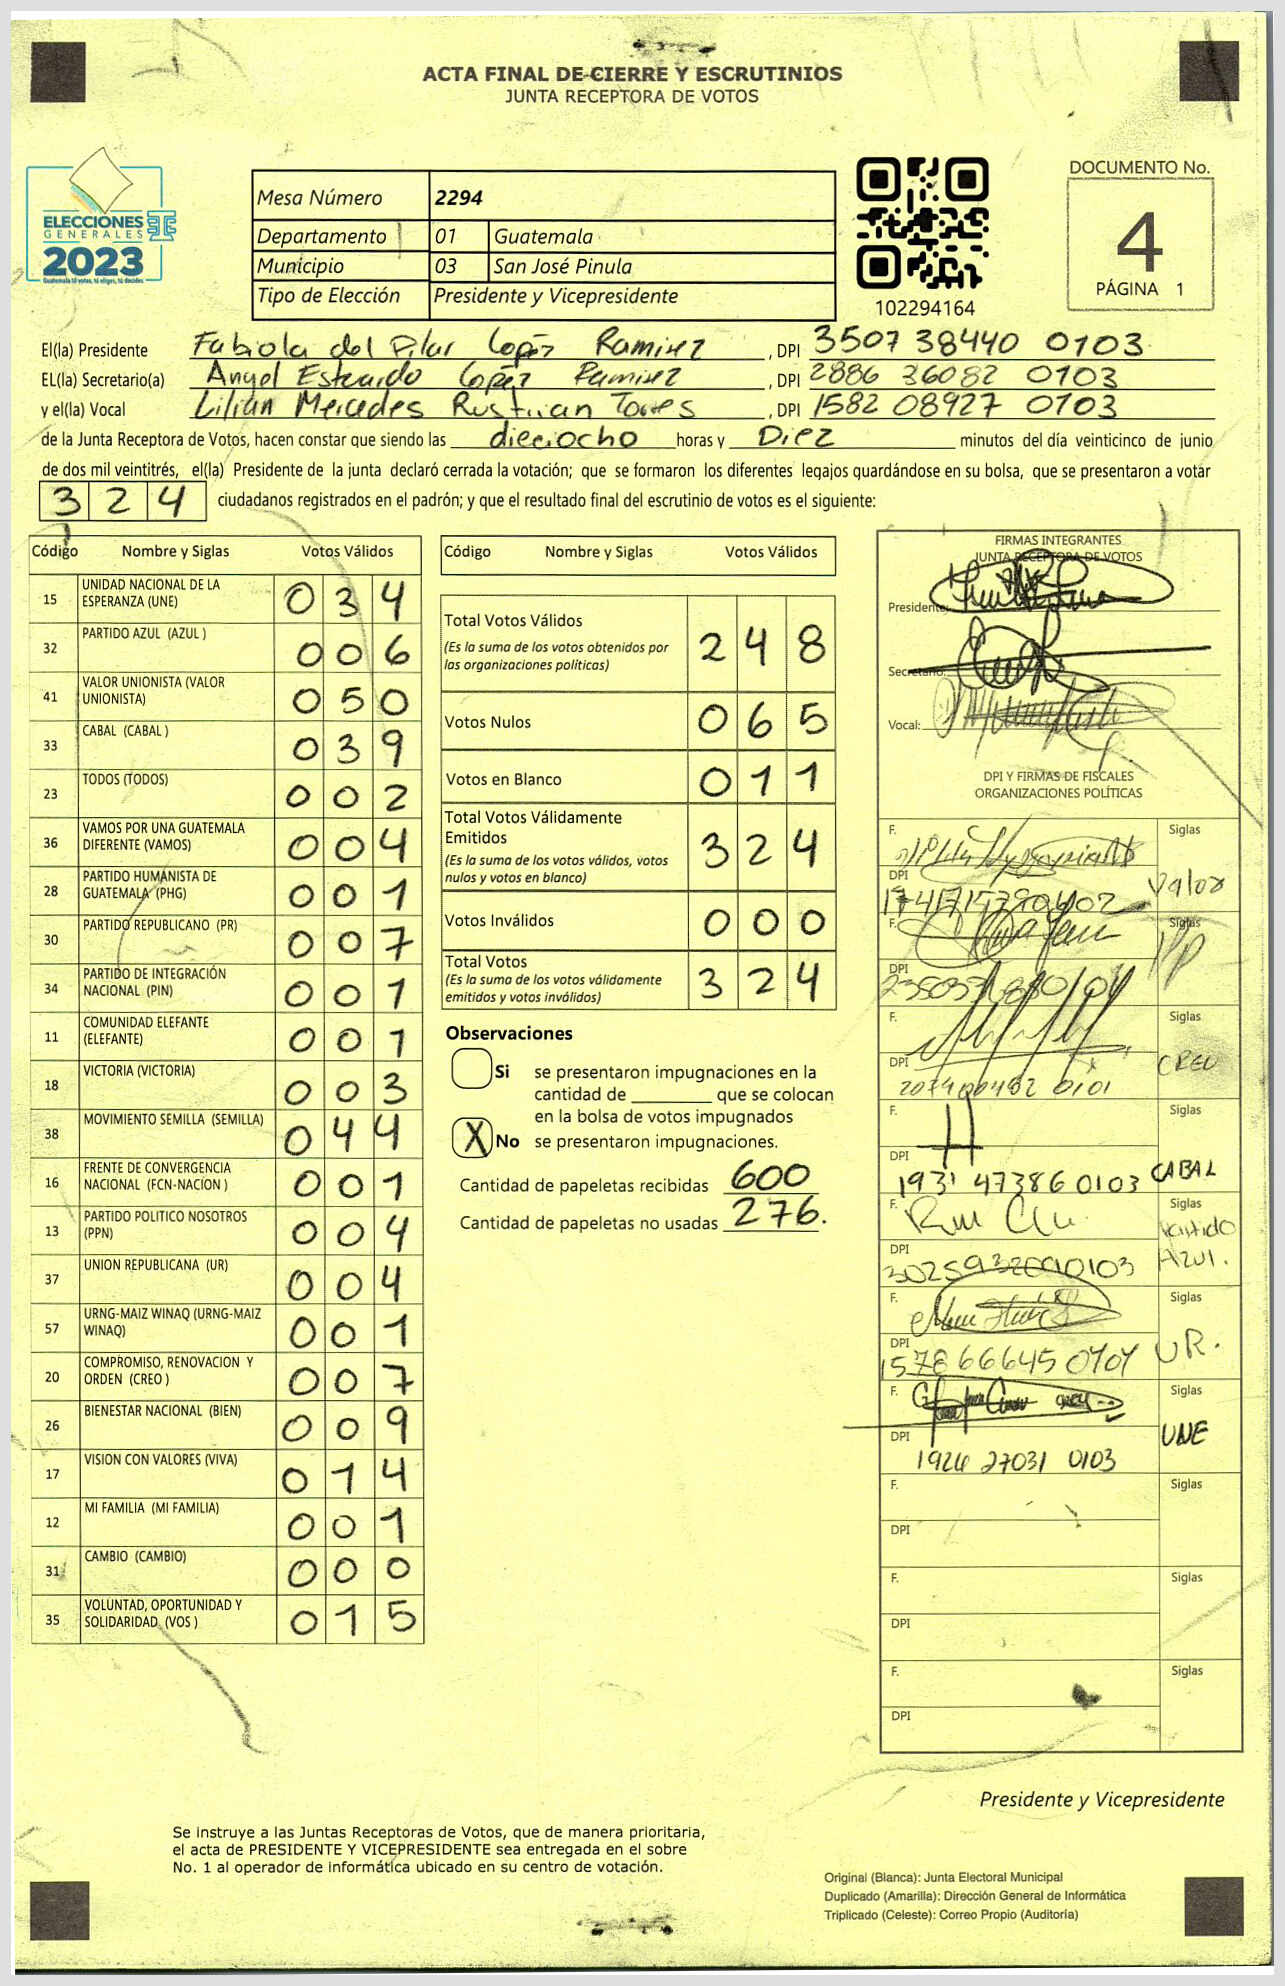 ACTA FINAL DE CIERRE Y ESCRUTINIOS
JUNTA RECEPTORA DE VOTOS
ELECCIONES
GENERALES
2023
Guatemala tú votas, tú eliges, tú decides
Mesa Número 2294
Departamento 01 Guatemala
Municipio 03 San José Pinula
Tipo de Elección Presidente y Vicepresidente
102294164
DOCUMENTO No.
4
PÁGINA 1
El(la) Presidente Fabiola del Pilar López Ramirez , DPI 3507 38440 0103
EL(la) Secretario(a) Angel Estuardo López Ramirez , DPI 2886 36082 0103
y el(la) Vocal Lilian Mercedes Rustrian Torres , DPI 1582 08927 0103
de la Junta Receptora de Votos, hacen constar que siendo las dieciocho horas y Diez minutos del día veinticinco de junio
de dos mil veintitrés, el(la) Presidente de la junta declaró cerrada la votación; que se formaron los diferentes legajos guardándose en su bolsa, que se presentaron a votar
324 ciudadanos registrados en el padrón; y que el resultado final del escrutinio de votos es el siguiente:
Código Nombre y Siglas Votos Válidos
15 UNIDAD NACIONAL DE LA ESPERANZA (UNE) 034
32 PARTIDO AZUL (AZUL ) 006
41 VALOR UNIONISTA (VALOR UNIONISTA) 050
33 CABAL (CABAL ) 039
23 TODOS (TODOS) 002
36 VAMOS POR UNA GUATEMALA DIFERENTE (VAMOS) 004
28 PARTIDO HUMANISTA DE GUATEMALA (PHG) 001
30 PARTIDO REPUBLICANO (PR) 007
34 PARTIDO DE INTEGRACIÓN NACIONAL (PIN) 001
11 COMUNIDAD ELEFANTE (ELEFANTE) 001
18 VICTORIA (VICTORIA) 003
38 MOVIMIENTO SEMILLA (SEMILLA) 044
16 FRENTE DE CONVERGENCIA NACIONAL (FCN-NACION ) 001
13 PARTIDO POLITICO NOSOTROS (PPN) 004
37 UNION REPUBLICANA (UR) 004
57 URNG-MAIZ WINAQ (URNG-MAIZ WINAQ) 001
20 COMPROMISO, RENOVACION Y ORDEN (CREO ) 007
26 BIENESTAR NACIONAL (BIEN) 009
17 VISION CON VALORES (VIVA) 014
12 MI FAMILIA (MI FAMILIA) 001
31 CAMBIO (CAMBIO) 000
35 VOLUNTAD, OPORTUNIDAD Y SOLIDARIDAD (VOS ) 015
Código Nombre y Siglas Votos Válidos
Total Votos Válidos 248
(Es la suma de los votos obtenidos por
las organizaciones políticas)
Votos Nulos 065
Votos en Blanco 011
Total Votos Válidamente
Emitidos 324
(Es la suma de los votos válidos, votos
nulos y votos en blanco)
Votos Inválidos 000
Total Votos 324
(Es la suma de los votos válidamente
emitidos y votos inválidos)
Observaciones
Si se presentaron impugnaciones en la
cantidad de ________ que se colocan
en la bolsa de votos impugnados
X No se presentaron impugnaciones.
Cantidad de papeletas recibidas 600
Cantidad de papeletas no usadas 276.
FIRMAS INTEGRANTES
JUNTA RECEPTORA DE VOTOS
Presidente:
Secretario:
Vocal:
DPI Y FIRMAS DE FISCALES
ORGANIZACIONES POLÍTICAS
F. Siglas
DPI Valor
F. Siglas
DPI
F. Siglas
DPI CREO
F. Siglas
DPI 1931 47386 0103 CABAL
F. Siglas
DPI Partido Azul.
F. Siglas
DPI 1578 66645 0101 UR.
F. Siglas
DPI 1924 27031 0103 UNE
F. Siglas
DPI
F. Siglas
DPI
F. Siglas
DPI
Presidente y Vicepresidente
Se instruye a las Juntas Receptoras de Votos, que de manera prioritaria,
el acta de PRESIDENTE Y VICEPRESIDENTE sea entregada en el sobre
No. 1 al operador de informática ubicado en su centro de votación.
Original (Blanca): Junta Electoral Municipal
Duplicado (Amarilla): Dirección General de Informática
Triplicado (Celeste): Correo Propio (Auditoría)